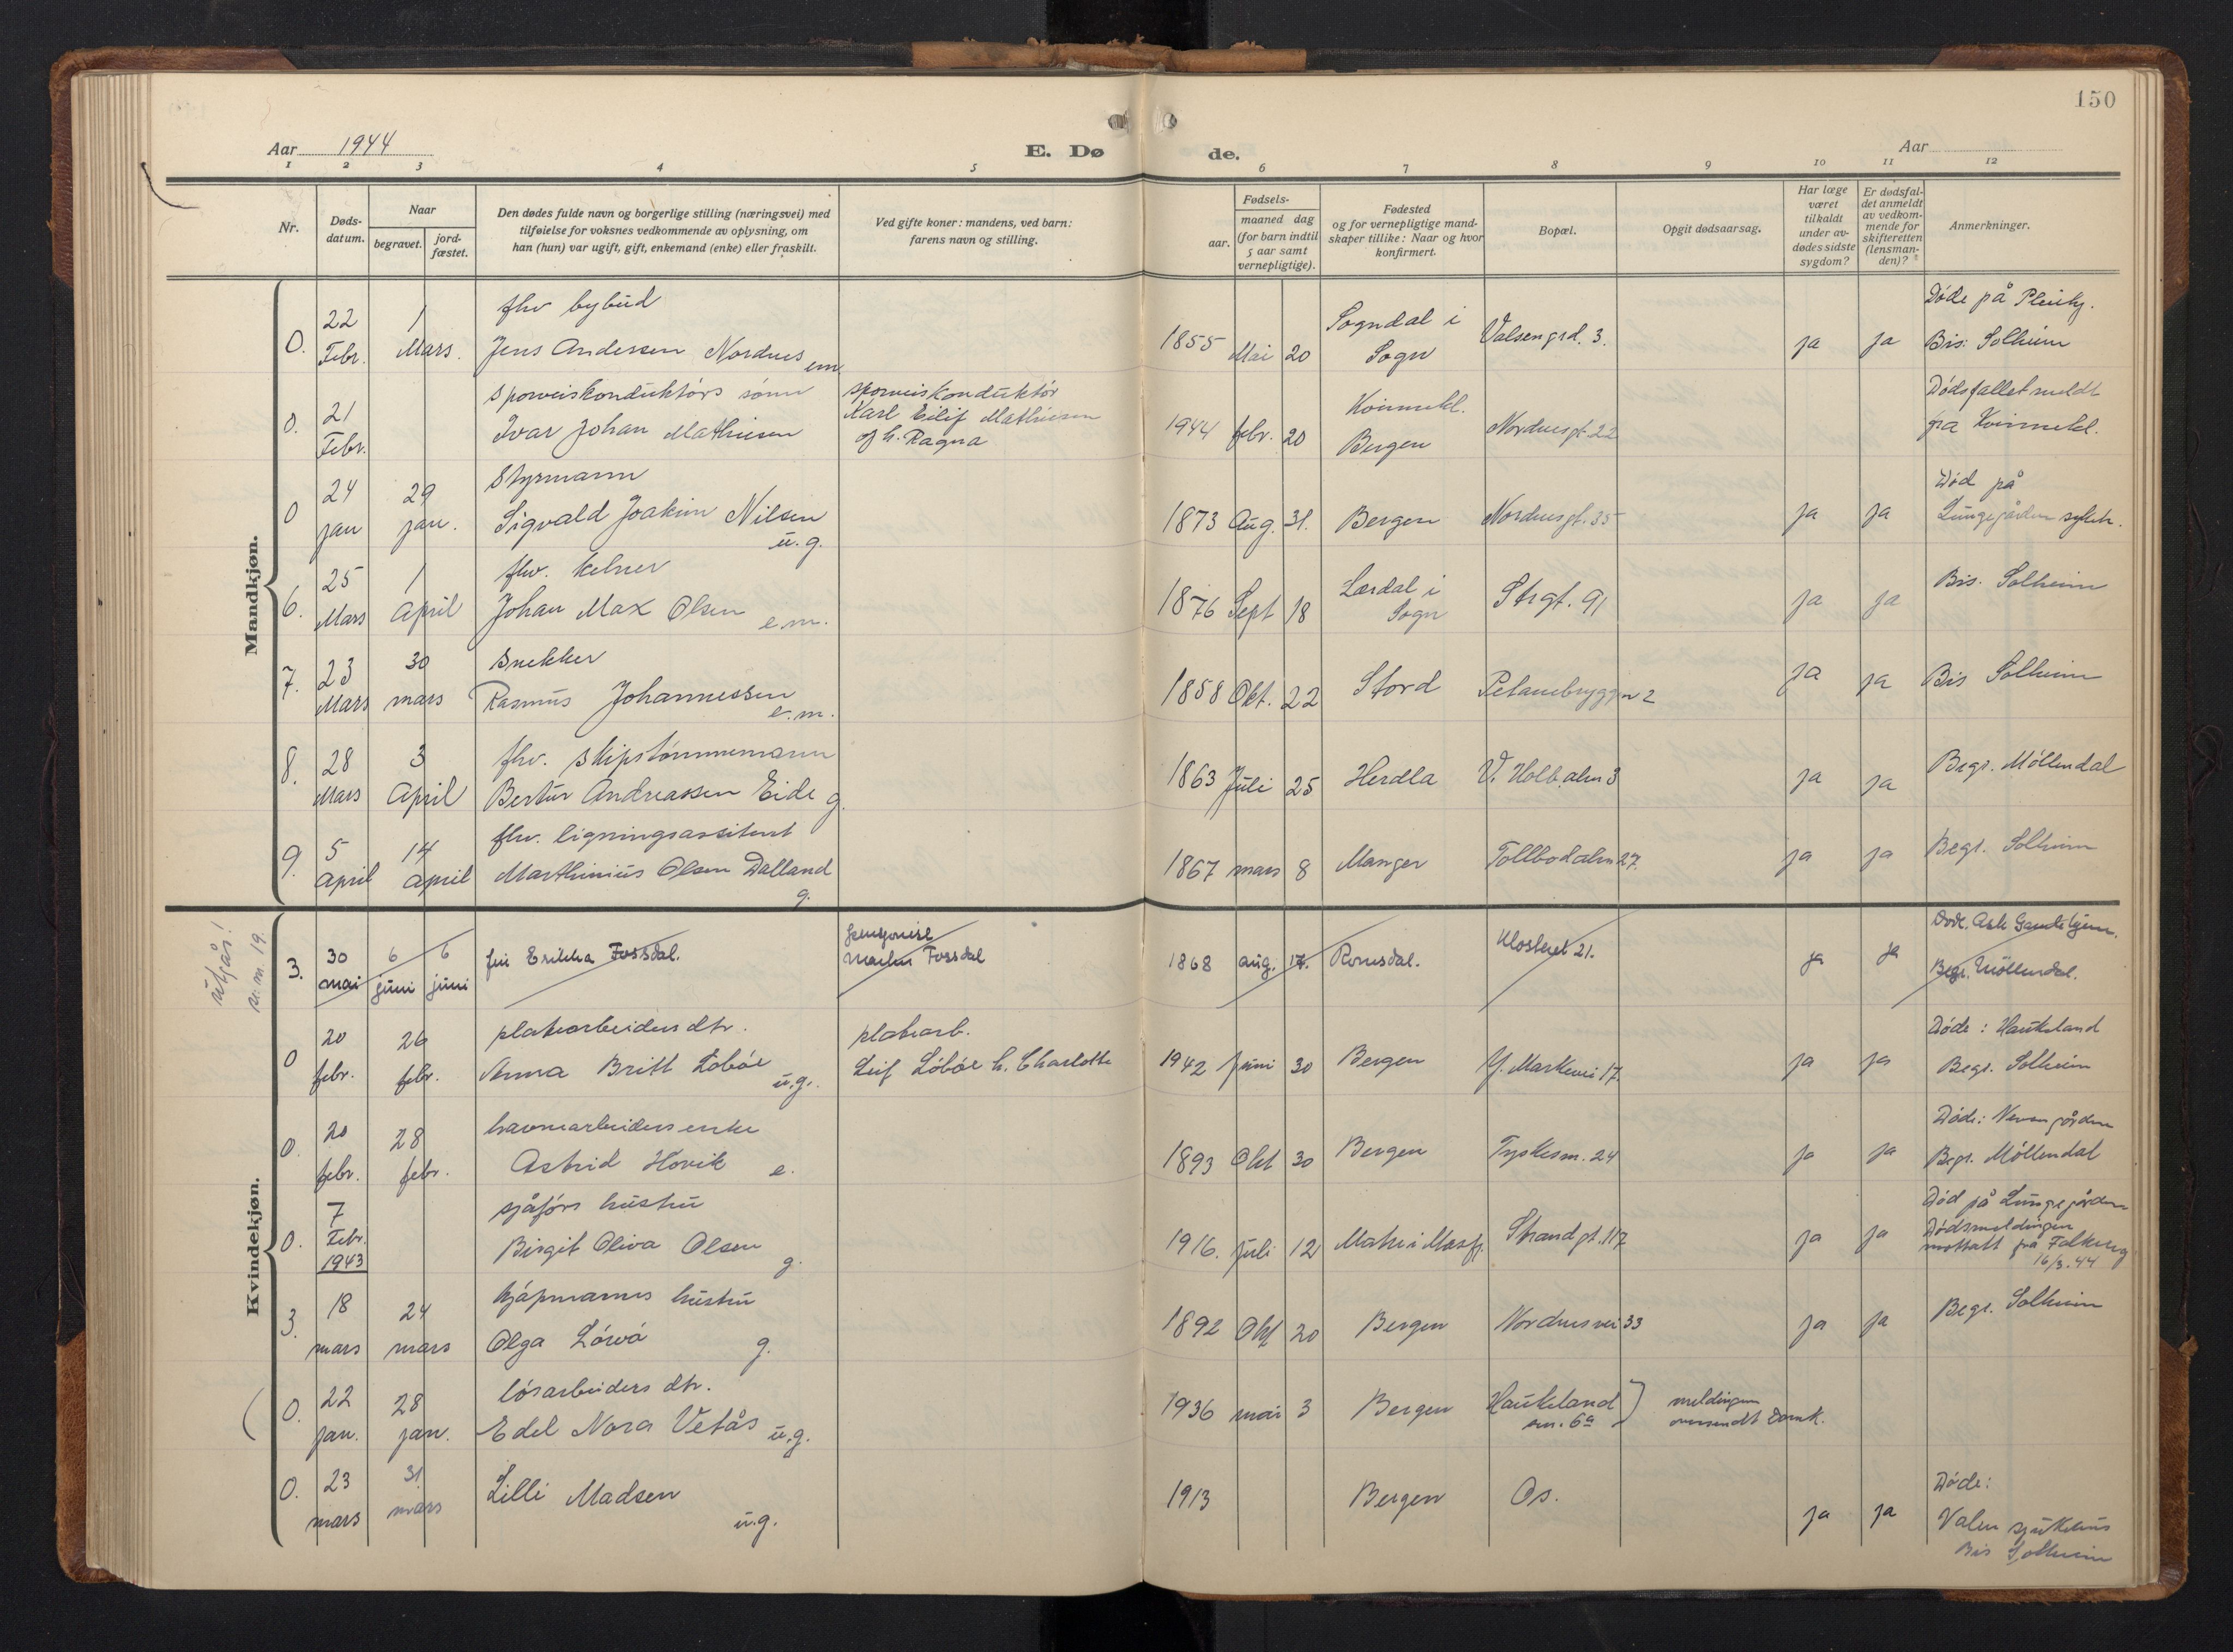 150
Aar 1944
E. Dø
de.
Aar
1 2 3 4 5 6 7 8 9 10 11 12
Nr.
Døds-
datum.
Naar
begravet.
jord-
fæstet.
Den dødes fulde navn og borgerlige stilling (næringsvei) med
tilføielse for voksnes vedkommende av oplysning, om
han (hun) var ugift, gift, enkemand (enke) eller fraskilt.
Ved gifte koner: mandens, ved barn:
farens navn og stilling.
Fødsels-
aar.
maaned dag
(for barn indtil
5 aar samt
vernepligtige).
Fødested
og for vernepligtige mand-
skaper tillike: Naar og hvor
konfirmert.
Bopæl.
Opgit dødsaarsag.
Har læge
været
tilkaldt
under av-
dødes sidste
sygdom?
Er dødsfal-
det anmeldt
av vedkom-
mende for
skifteretten
(lensman-
den)?
Anmerkninger.
Mandkjøn.
0. 22 Febr. 1 Mars.
fhv bybud
Jens Anderssen Nordnes em
1855 Mai 20
Sogndal i
Sogn
Valsengrd. 3.
ja ja
Døde på Pleiehj.
Bis: Solheim
0. 21 Febr.
sporveiskonduktørs sønn
Ivar Johan Mathiesen
sporveiskonduktør
Karl Eilif Mathiesen
og h. Ragna
1944 febr. 20
Kvinnekl.
Bergen
Nordnesgt. 22
Dødsfallet meldt
fra Kvinnekl.
0 24 jan 29 jan.
Styrmann
Sigvald Joakim Nilsen
u.g.
1873 Aug. 31.
Bergen
Nordnesgt. 35
ja ja
Død på
Lungegården sykeh.
6. 25 Mars 1 April
fhv. kelner
Johan Max Olsen
e.m.
1876 Sept 18
Lærdal i
Sogn
Strgt. 91
ja ja
Bis. Solheim
7. 23 Mars 30 mars
snekker
Rasmus Johannessen
e.m.
1858 Okt. 22
Stord
ja ja
Bis Solheim
8. 28 Mars 3 April
fhv. skipstømmemann
Bertin Andreassen Eide g.
1863 Juli 25
Herdla
V. Holb.alm 3
ja ja
Begr. Möllendal
9. 5 April 14 April
fhv. ligningsassitent
Marthinius Olsen Dalland
g.
1867 mars 8
Manger
Tollbodalm 27.
ja ja
Begr. Solheim
Kvindekjøn.
utgår!
se. nr. 19.
3. 30 mai 6 juni 6 juni
fru Erikka Fossdal.
Martin Fossdal
1868 aug. 17.
Romsdal.
Klosteret 21.
ja ja
Døde. Ask Gamlehjem.
Begr. Möllendal.
0 20 febr. 26 febr.
platearbeiders dtr.
Anna Britt Løbøe
u.g.
platearb.
Leif Løbøe h. Charlotte
1942 juni 30
Bergen
Y. Markevei 17.
ja ja
Døde: Haukeland
Begr. Solheim
0. 20 febr. 28 febr.
havnearbeiders enke
Astrid Hovik e.
1893 Okt 30
Bergen
Tyskesm. 24
ja ja
Døde: Nevengården
Begr. Möllendal
0. 7 Febr. 1943
sjåførs hustru
Birgit Oliva Olsen
g.
1916. juli 12
Matre i Masfj.
Strandgt. 117
ja ja
Død på Lungegården
Dødsmeldingen
mottatt fra
16/3. 44
3. 18 mars 24 mars
kjøpmanns hustru
Olga Löwö g.
1892 Okt 20
Bergen
Nordnesvei 33
ja ja
Begr. Solheim
0. 22 jan. 28 jan.
løsarbeiders dtr.
Edel Nora Vetås u.g.
1936 mai 3
Bergen
Haukeland
sm. 6a
meldingen
oversendt Domk.
0. 23 mars 31 mars
Lilli Madsen
u.g.
1913
Bergen
Os.
ja ja
Døde:
Valen sjukehus
Bis Solheim